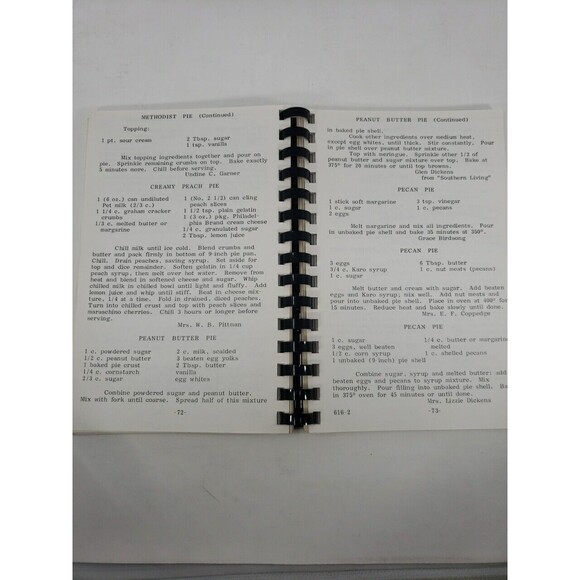 METHODIST PIE (Continued)
Topping:
1 pt. sour cream
2 Tbsp. sugar
1 tsp. vanilla
Mix topping ingredients together and pour on
pie. Sprinkle remaining crumbs on top. Bake exactly
5 minutes more. Chill before serving.
Undine C. Garner
CREAMY PEACH PIE
1 (6 oz.) can undiluted
Pet milk (2/3 c.)
1 1/4 c. graham cracker
crumbs
1/3 c. melted butter or
margarine
1 (No. 2 1/2) can cling
peach slices
1 1/2 tsp. plain gelatin
1 (3 oz.) pkg. Philadel-
phia Brand cream cheese
1/4 c. granulated sugar
2 Tbsp. lemon juice
Chill milk until ice cold. Blend crumbs and
butter and pack firmly in bottom of 9-inch pie pan.
Chill. Drain peaches, saving syrup. Set aside for
top and dice remainder. Soften gelatin in 1/4 cup
peach syrup, then melt over hot water. Remove from
heat and blend in softened cheese and sugar. Whip
chilled milk in chilled bowl until light and fluffy. Add
lemon juice and whip until stiff. Beat in cheese mix-
ture, 1/4 at a time. Fold in drained, diced peaches.
Turn into chilled crust and top with peach slices and
maraschino cherries. Chill 3 hours or longer before
serving.
Mrs. W. B. Pittman
PEANUT BUTTER PIE
1 c. powdered sugar
1/2 c. peanut butter
1 baked pie crust
1/4 c. cornstarch
2/3 c. sugar
2 c. milk, scalded
3 beaten egg yolks
2 Tbsp. butter
vanilla
egg whites
Combine powdered sugar and peanut butter.
Mix with fork until coarse. Spread half of this mixture
-72-
PEANUT BUTTER PIE (Continued)
in baked pie shell.
Cook other ingredients over medium heat,
except egg whites, until thick. Stir constantly. Pour
in pie shell over peanut butter mixture.
Top with meringue. Sprinkle other 1/2 of
peanut butter and sugar mixture over top. Bake at
375° for 20 minutes or until top browns.
Glen Dickens
from "Southern Living"
PECAN PIE
1 stick soft margarine
1 c. sugar
3 eggs
1 c. pecans
tsp. vinegar
Melt margarine and mix all ingredients. Pour
in unbaked pie shell and bake 35 minutes at 350°.
Grace Birdsong
PECAN PIE
3 eggs
3/4 c. Karo syrup
1 c. sugar
6 Tbsp. butter
1 c. nut meats (pecans)
Melt butter and cream with sugar. Add beaten
eggs and Karo syrup; mix well. Add nut meats and
pour into unbaked pie shell. Place in oven at 400° for
15 minutes. Reduce heat and bake slowly until done.
Mrs. E. F. Coppedge
PECAN PIE
1 c. sugar
3 eggs, well beaten
1/2 c. corn syrup
1 unbaked (9 inch) pie shell
1/4 c. butter or margarine,
melted
1 c. shelled pecans
Combine sugar, syrup and melted butter; add
beaten eggs and pecans to syrup mixture. Mix
thoroughly. Pour filling into unbaked pie shell. Bake
in 375° oven for 45 minutes or until done.
Mrs. Lizzie Dickens
616-2
-73-